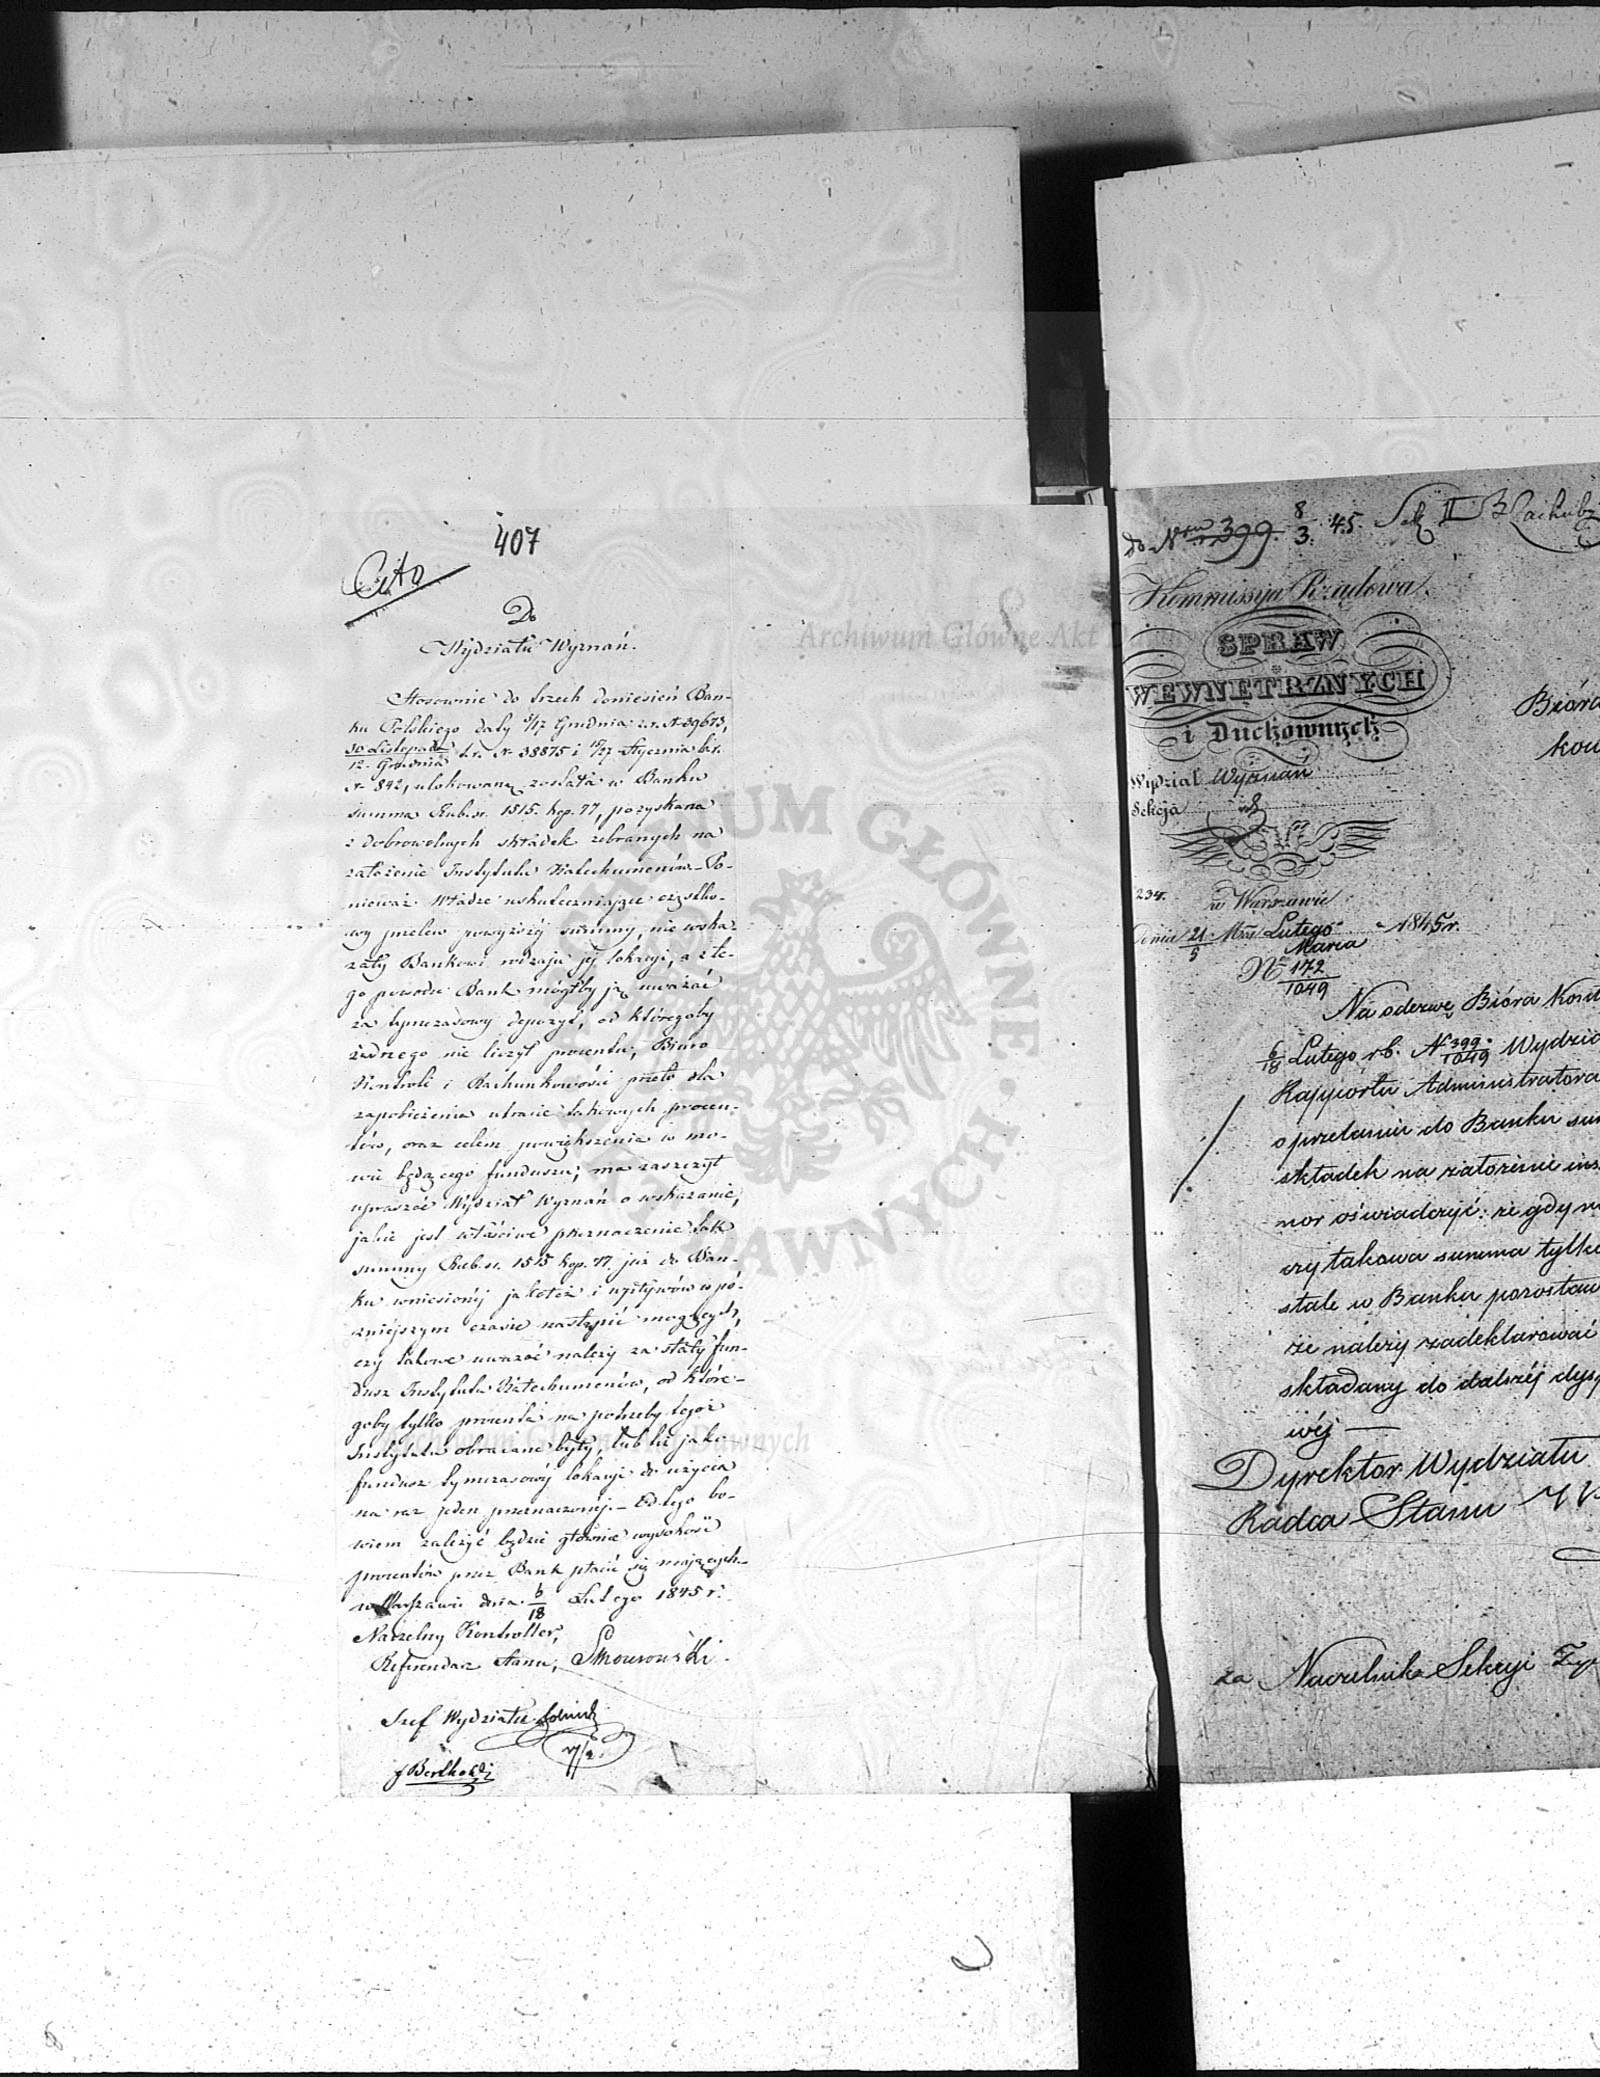 407
Cito
Do
Wydziału Wyznań.
Stosownie do trzech doniesień Ban-
ku Polskiego daty 5/17 Grudnia z.r. N 39673,
30 Listopada / 12 Grudnia t.r. N 38875 i 15/27 Stycznia b.r.
N 842, ulokowaną została w Banku
summa Rub. sr. 1515. kop. 77, pozyskana
z dobrowolnych składek zebranych na
założenie Instytutu Katechumenów. – Po-
nieważ Władze uskuteczniające cząstko-
wy przelew powyższej summy, nie wska-
zały Bankowi rodzaju jej lokacyi, a z te-
go powodu Bank mógłby ją uważać
za tymczasowy depozyt, od któregoby
żadnego nie liczył procentu, Biuro
Kontroli i Rachunkowości przeto dla
zapobieżenia utracie takowych procen-
tów, oraz celem powiększenia w mo-
wie będącego funduszu, ma zaszczyt
upraszać Wydział Wyznań o wskazanie,
jakie jest właściwe przeznaczenie tak
summy Rub. sr. 1515 kop. 77. już do Ban-
ku wniesionéj jakotéż i wpływów w pó-
źniejszym czasie nastąpić mogących,
czy takowe uważać należy za stały fun-
dusz Instytutu Katechumenów, od które-
goby tylko procenta na potrzeby tegoż
Instytutu obracane były, lub też jako
fundusz tymczasowéj lokacyi do użycia
na raz jeden przeznaczonéj. – Od tego bo-
wiem zależyć będzie głównie wysokość
procentów przez Bank płacić się mających.
w Warszawie dnia 6/18 Lutego 1845 r.
Naczelny Kontroller,
Referendarz Stanu,
Szef Wydziału
7/2.
do Nru 399. 8/3. 45. Sek II
Kommissyja Rządowa
SPRAW
WEWNĘTRZNYCH
i Duchownych
Bióra
Wydział Wyznań
Sekcja
234.
w Warszawie
dnia 21/5 Mca Lutego / Marca 1845 r.
Nr 172/1049
Na odezwę Bióra Kont
6/18 Lutego r.b. N 399/1049 Wydzia
Rapportu Administratora
o przelaniu do Banku su
składek na założenie ins
nor oświadczyć: że gdy n
czy takowa summa tylko
stale w Banku pozostaw
że należy zadeklarować
składany do dalszéj dys
wéj —
Dyrektor Wydziału
Radca Stanu
za Naczelnika Sekcyi
ARCHIWUM GŁÓWNE AKT DAWNYCH
Archiwum Główne Akt D
Archiwum Główne Akt Dawnych